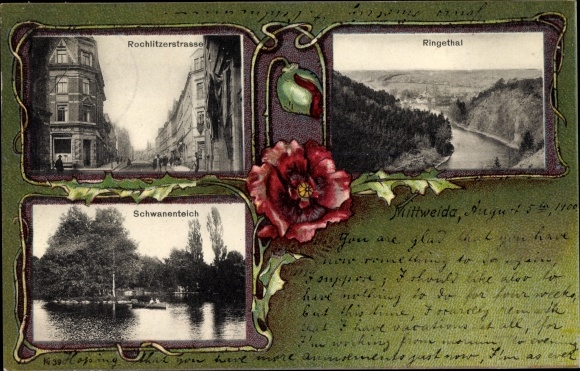 Rochlitzerstrasse
Ringethal
Schwanenteich
Mittweida, August 5th, 1900
You are glad that you have
now something to do again,
I suppose; I should like also to
have nothing to do for four weeks,
but this time, I
that I have vacations at all, for
I'm working from morning to evening
Hoping that you have more amusements just now, I'm as ever
No 39